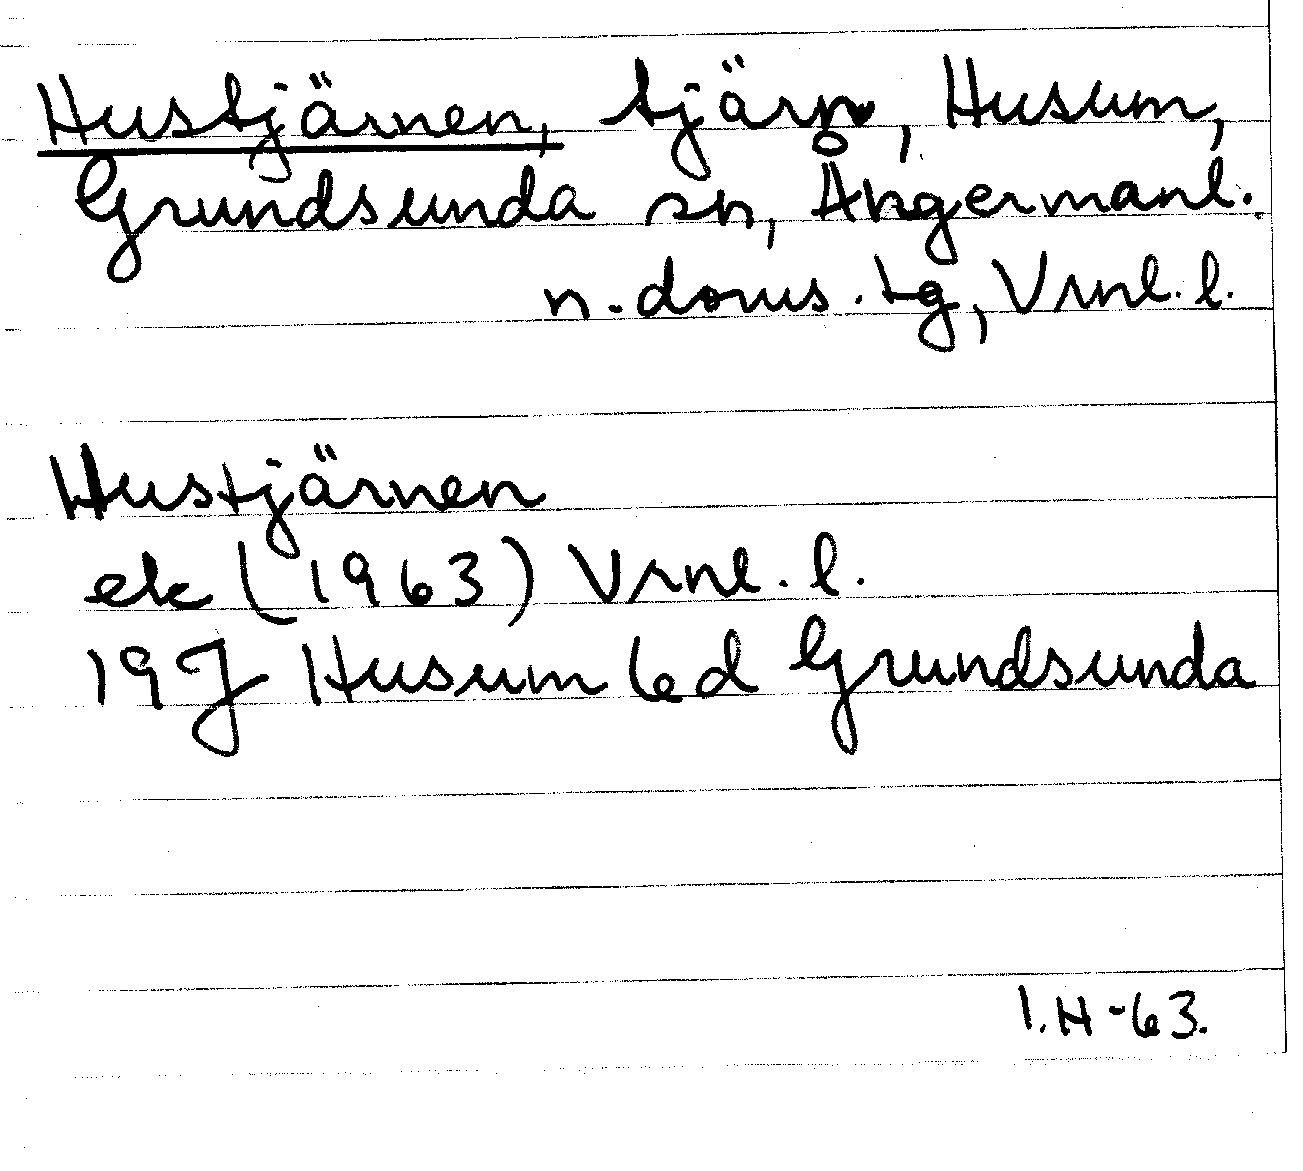 Hustjärnen, tjärn, Husum,
Grundsunda sn, Ångermanl.
n. doms. tg, Vrnl. l.
Hustjärnen
ek (1963) Vrnl. l.
19 J Husum 6d Grundsunda
I.H-63.